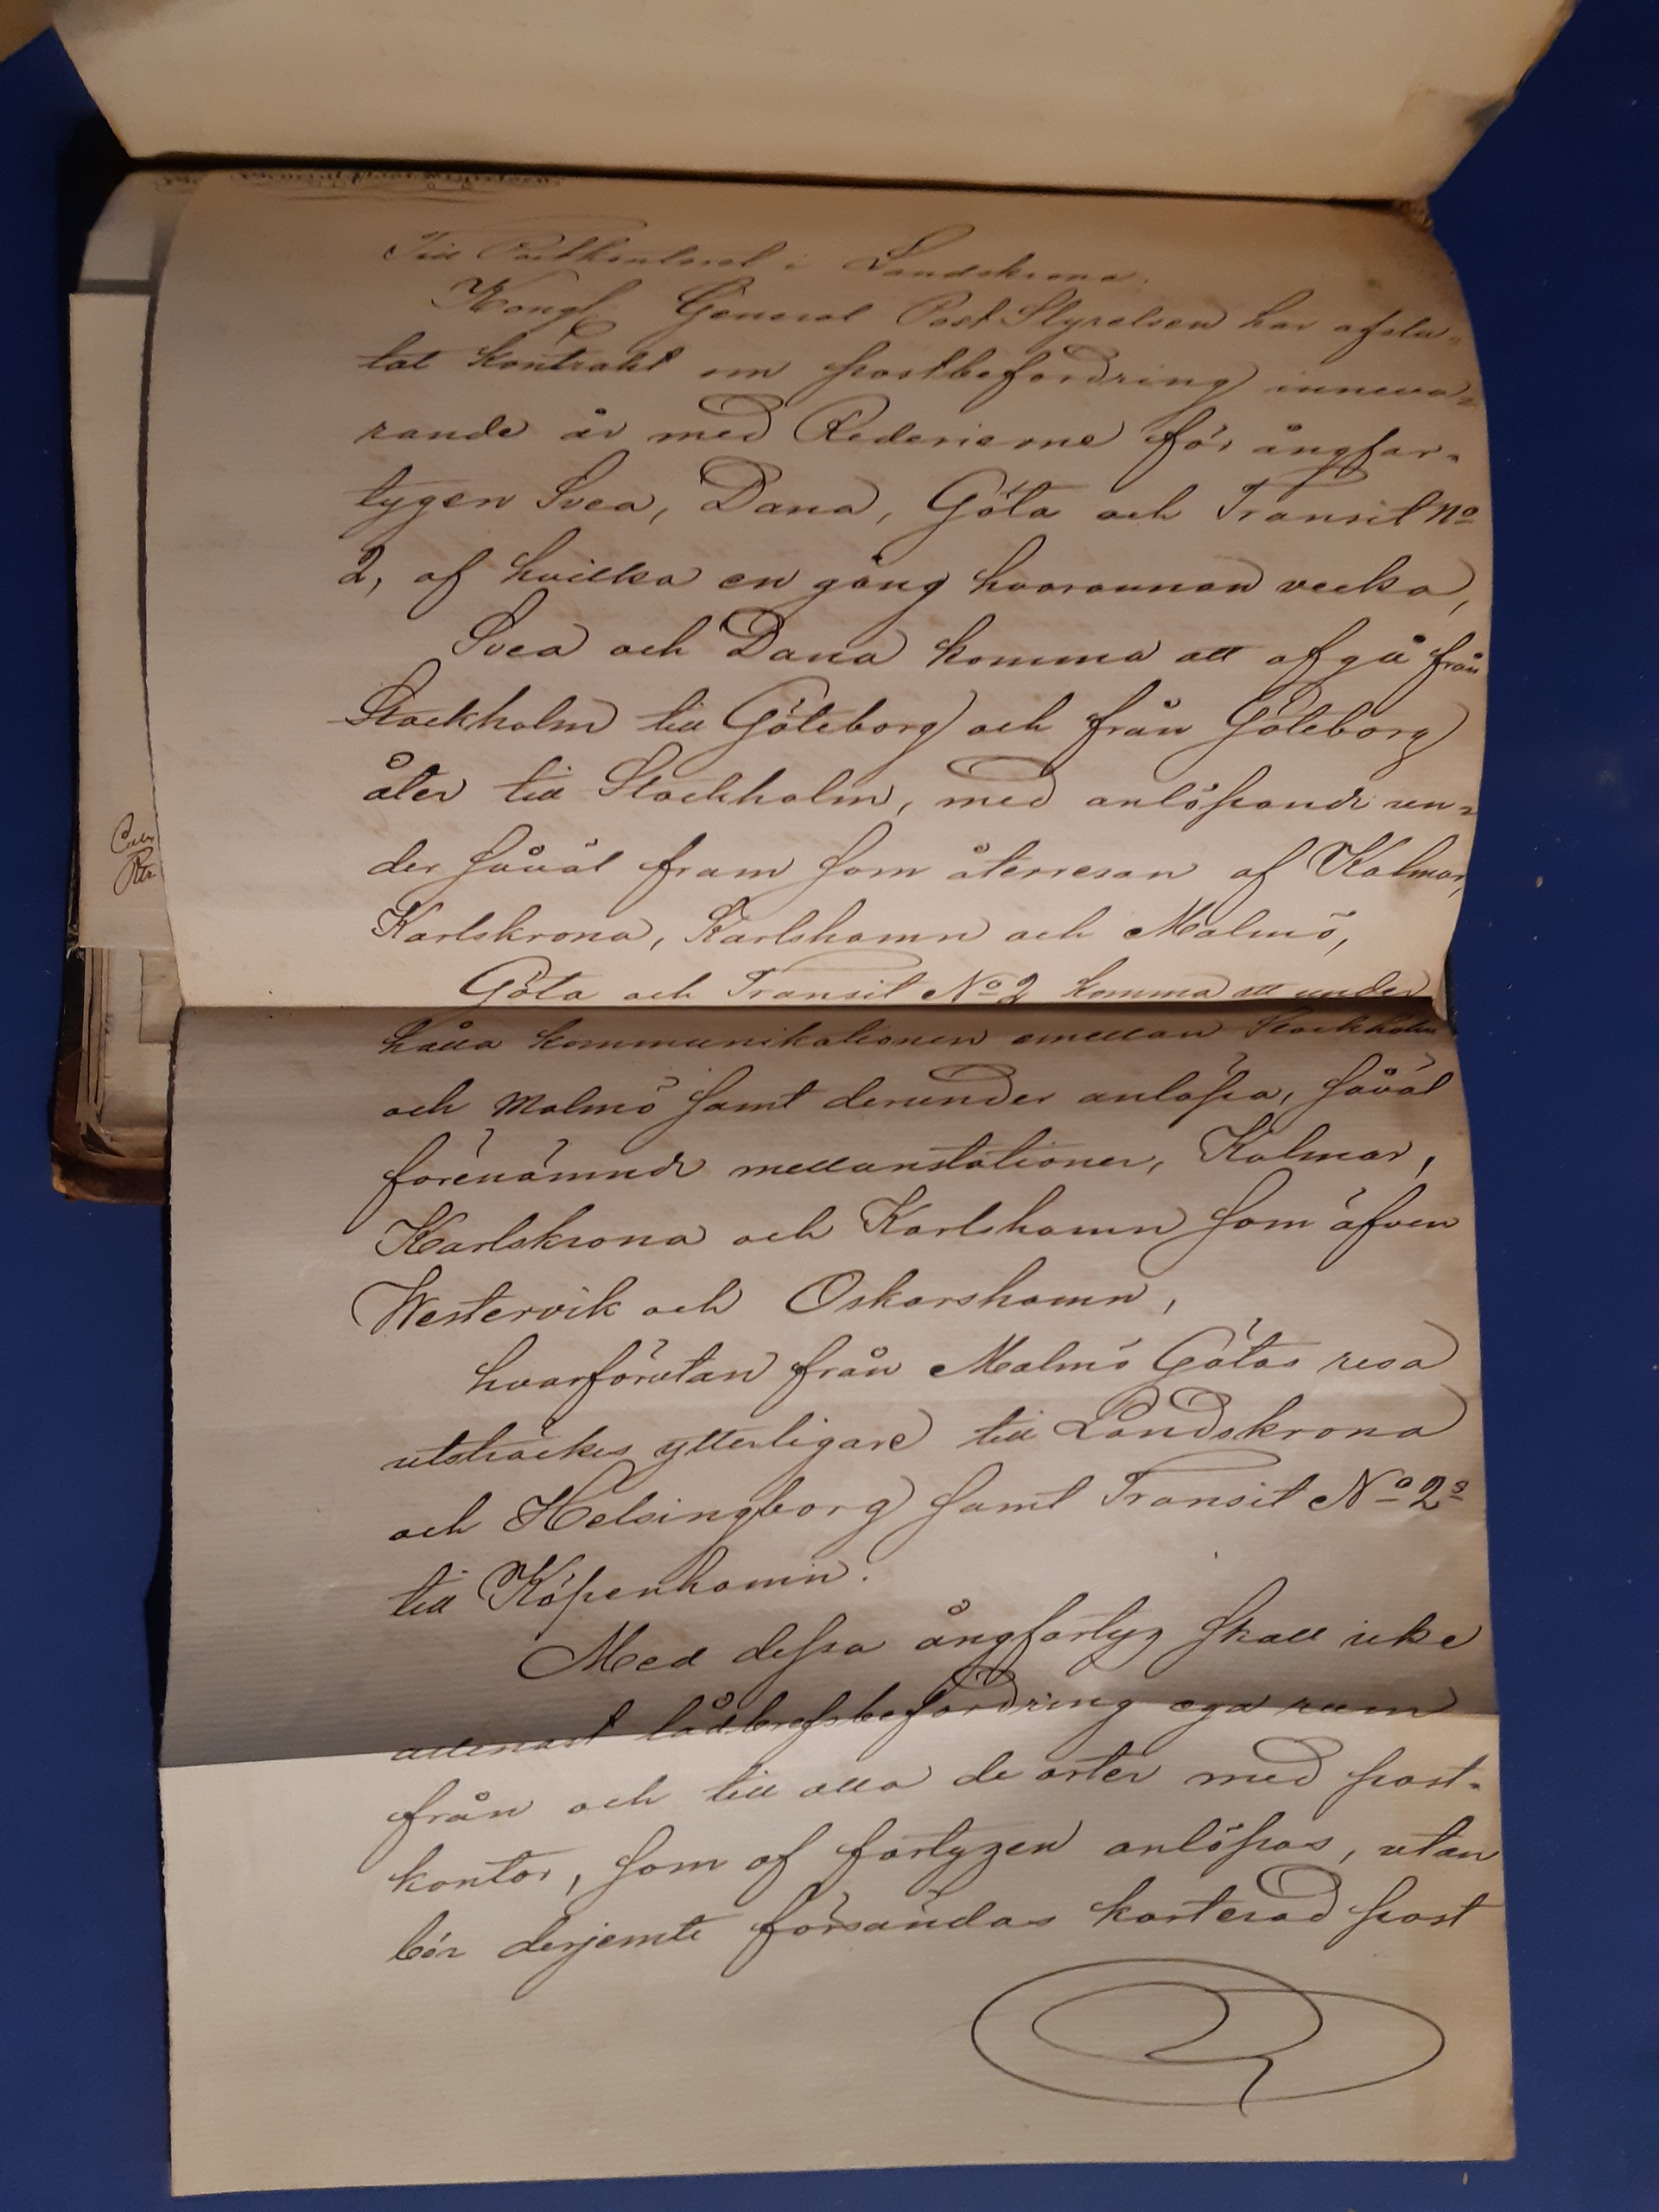 Till Postkontoret i Landskrona.
Kongl General Post Styrelsen har afslu-
tat kontrakt om postbefordring inneva-
rande år med Rederierne för ångfar-
tygen Svea, Dana, Göta och Transit No
2, af hvilka en gång hvarannan vecka,
Svea och Dana komma att afgå från
Stockholm till Göteborg och från Göteborg
åter till Stockholm, med anlöpande un-
der såväl fram som återresan af Kalmar,
Karlskrona, Karlshamn och Malmö,
Göta och Transit No 2 komma att under
hålla kommunikationen emellan Stockholm
och Malmö samt derunder anlöpa, såväl
förenämnde mellanstationer, Kalmar,
Karlskrona och Karlshamn som äfven
Westervik och Oskarshamn,
hvarförutan från Malmö Götas resa
utsträckes ytterligare till Landskrona
och Helsingborg samt Transit No 2s
till Köpenhamn.
Med dessa ångfartyg skall icke
allenast lådbrefsbefordring ega rum
från och till alla de orter med post-
kontor, som af fartygen anlöpas, utan
bör derjemte försändas karterad post